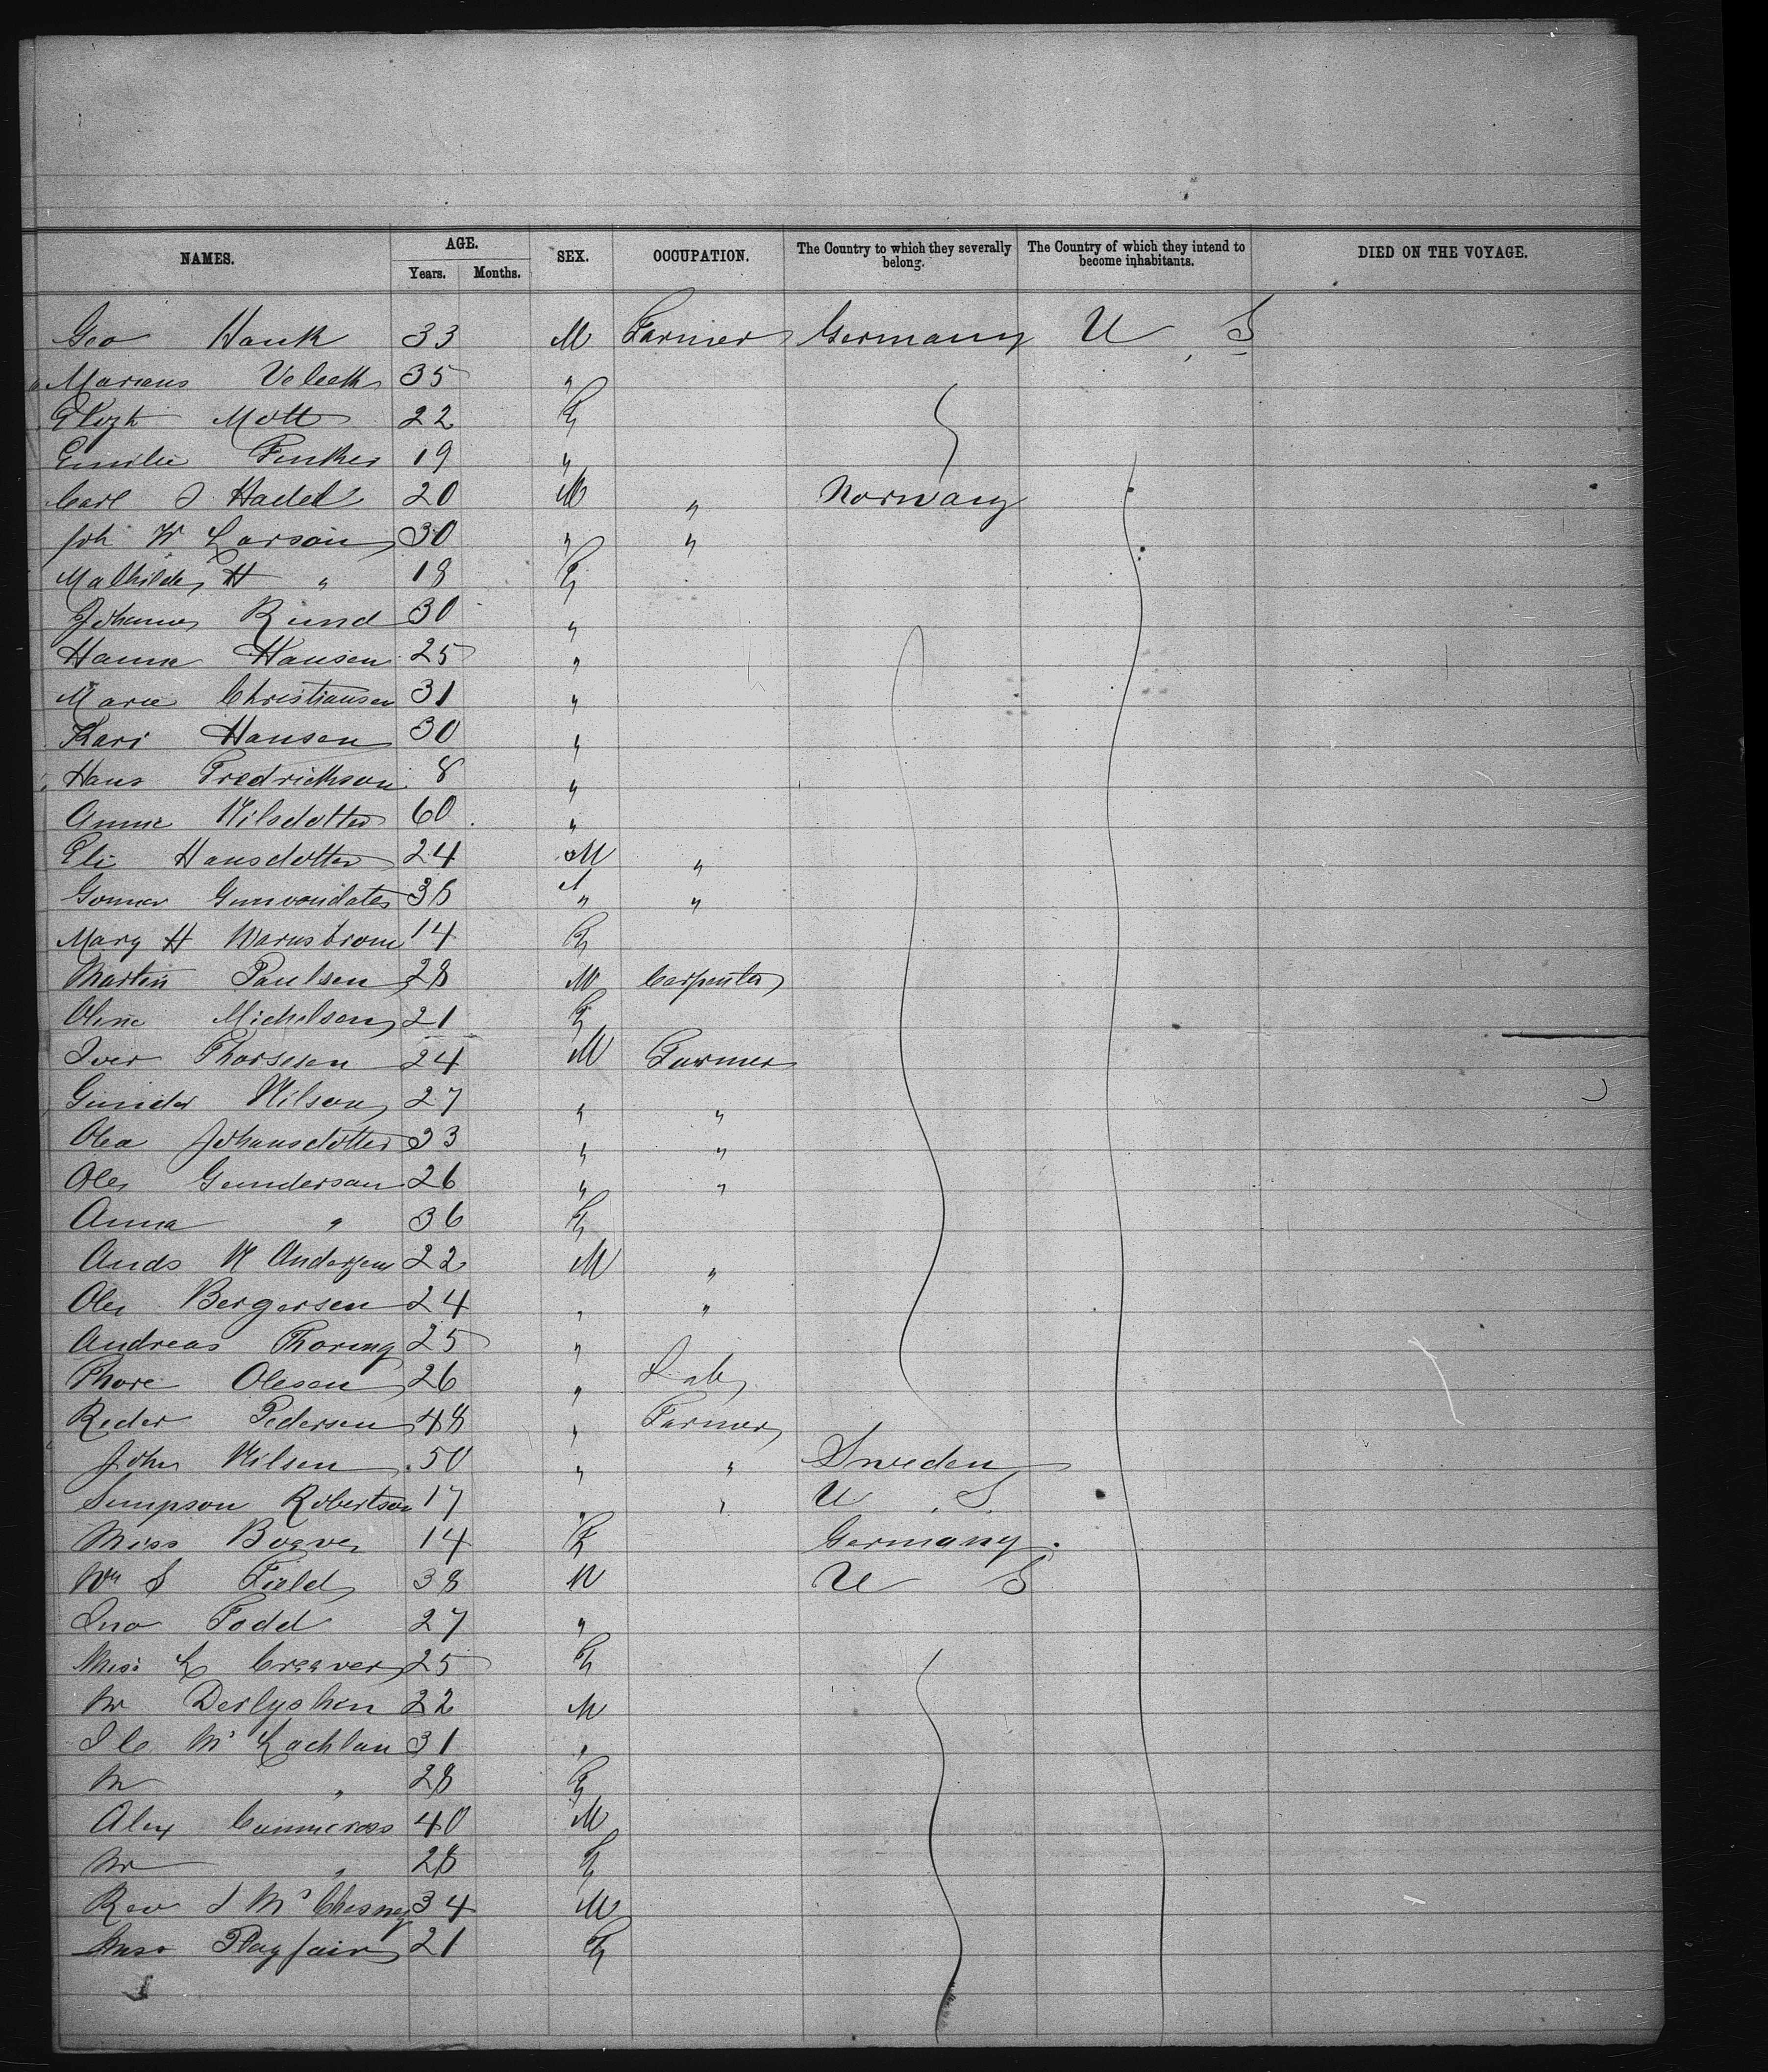 NAMES. AGE. Years. Months. SEX. OCCUPATION. The Country to which they severally belong. The Country of which they intend to become inhabitants. DIED ON THE VOYAGE.
Geo Hauk 33 M Farmer Germany U S
Marians 35 "
Elizh Mott 22 F
Emilie 19 "
Carl J 20 M " Norway
Joh W Larson 30 " "
Mathilde H " 18 F
Johannes Rund 30 "
Hanna Hansen 25 "
Marie Christiansen 31 "
Kari Hansen 30 "
Hans Fredrickson 8 "
Anne Nilsdotter 60 "
Eli Hansdotter 24 M "
36 " "
Mary H Warnstrom 14 F
Martin Paulsen 28 M Carpenter
Oline Michelsen 21 F
Iver Thorsesen 24 M Farmer
Gunder Nilson 27 " "
Olea Johansdotter 23 " "
Ole Gunderson 26 " "
Anna " 36 F
Ands N Andersen 22 M "
Ole Bergersen 24 " "
Andreas Thoring 25 "
Thore Olesen 26 " Lab
Reder Pedersen 48 " Farmer
John Nilsen 50 " " Sweden
Simpson Robertson 17 " " U S
Miss 14 F Germany
Wm S Field 38 M U S
Jno Todd 27 "
Miss L 25 F
Mr 22 M
J C Mc Lachlan 31 "
M " 28 F
Alex Cunncross 40 M
Mr " 28 F
Rev J Mc Chesney 34 M
Miss Playfair 21 F